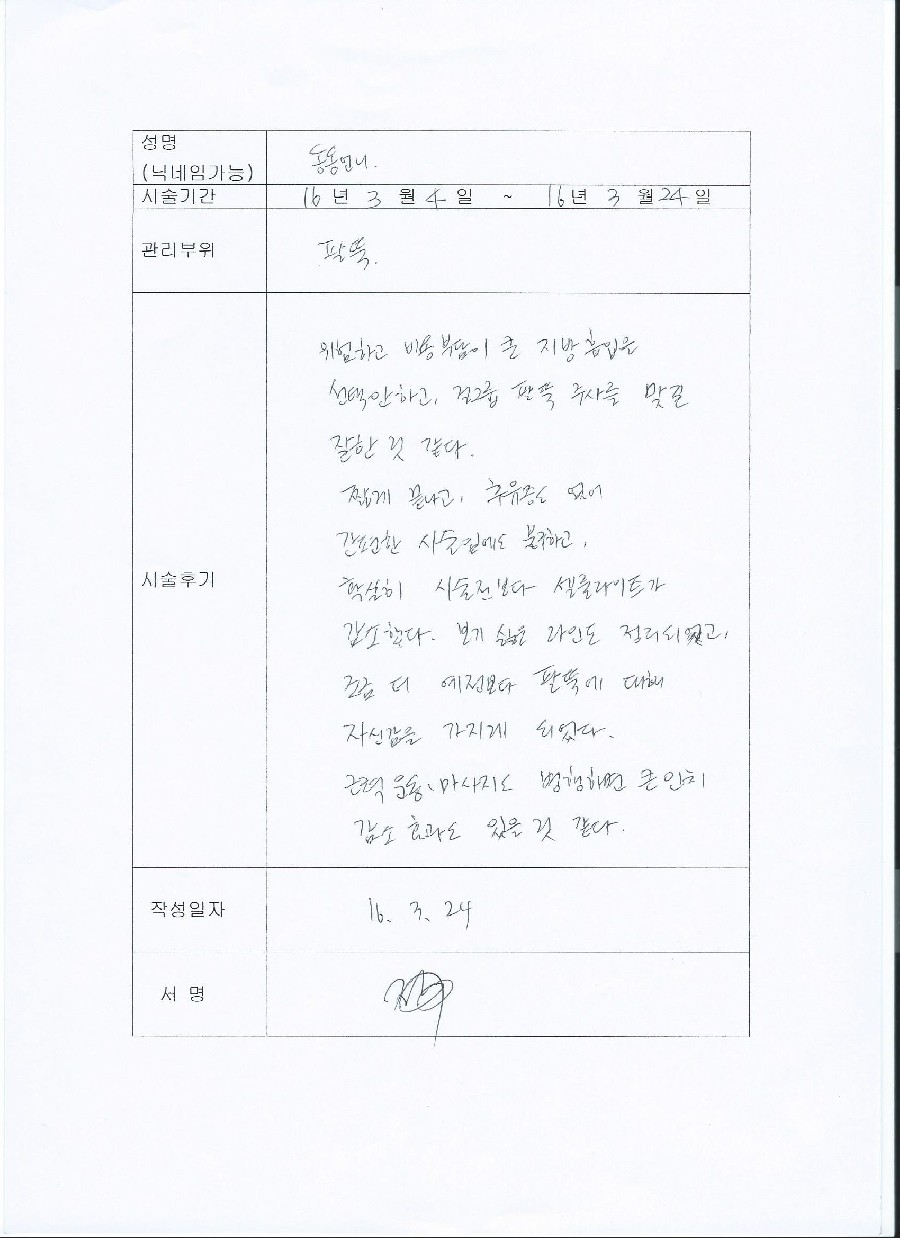 성명
(닉네임가능)
언니.
시술기간 16년 3월 4일 ~ 16년 3월 24일
관리부위 팔뚝.
위험하고 비용부담이 큰 지방흡입은
선택안하고, 걸그룹 팔뚝 주사를 맞길
잘한 것 같다.
짧게 끝나고, 후유증도 없어
간편한 시술임에도 불구하고,
시술후기
확실히 시술전보다 셀룰라이트가
감소했다. 보기 싫은 라인도 정리되었고,
조금 더 예전보다 팔뚝에 대해
자신감을 가지게 되었다.
근력 운동, 마사지도 병행하면 큰 인치
감소 효과도 있을 것 같다.
작성일자 16. 3. 24
서 명